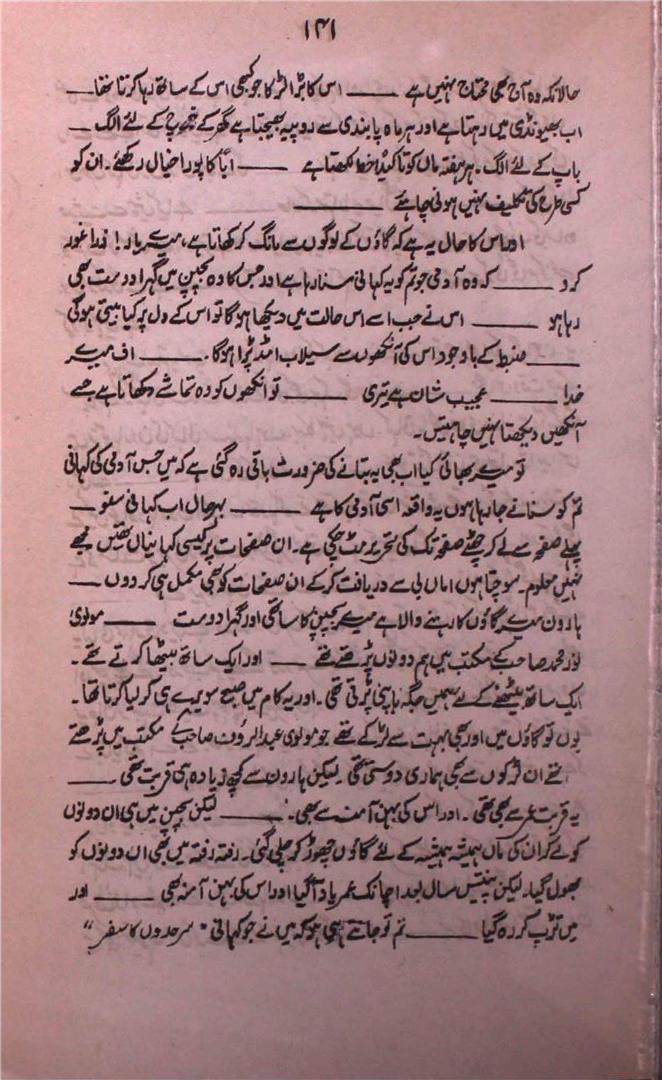 ۱۴۱
حالانکہ وہ آج بھی محتاج نہیں ہے ——— اس کا بڑا لڑکا جو کبھی اس کے ساتھ رہا کرتا تھا ——
اب بھیونڈی میں رہتا ہے اور ہر ماہ پابندی سے روپیہ بھیجتا ہے گھر کے خرچ کے لئے الگ ——
باپ کے لئے الگ۔ ہر ہفتہ ماں کو تاکیداً خط لکھتا ہے ——— ابّا کا پورا خیال رکھئے۔ ان کو
کسی طرح کی تکلیف نہیں ہونی چاہئے ———
اور اس کا حال یہ ہے کہ گاؤں کے لوگوں سے مانگ کر کھاتا ہے، میرے یار! ذرا غور
کرو ——— کہ وہ آدمی جو تم کو یہ کہانی سنا رہا ہے اور جس کا وہ بچپن میں گہرا دوست بھی
رہا ہو ——— اس نے جب اسے اس حالت میں دیکھا ہوگا تو اس کے دل پر کیا بیتی ہوگی
——— ضبط کے باوجود اس کی آنکھوں سے سیلاب امڈ پڑا ہوگا۔ ——— اف میرے
خدا ——— عجیب شان ہے تیری ——— تو آنکھوں کو وہ تماشے دکھاتا ہے جسے
آنکھیں دیکھنا نہیں چاہتیں۔
تو میرے بھائی کیا اب بھی یہ بتانے کی ضرورت باقی رہ گئی ہے کہ میں جس آدمی کی کہانی
تم کو سنانے جا رہا ہوں یہ واقعہ اسی آدمی کا ہے ——— بہرحال اب کہانی سنو ——
پہلے صفحہ سے لے کر چھٹے صفحہ تک کی تحریر مٹ چکی ہے۔ ان صفحات پر کیسی کہانیاں تھیں مجھے
نہیں معلوم۔ سوچتا ہوں اماں بی سے دریافت کرکے ان صفحات کو بھی مکمل ہی کر دوں ——
ہارون میرے گاؤں کا رہنے والا ہے میرے بچپن کا ساتھی اور گہرا دوست ——— مولوی
نور محمد صاحب کے مکتب میں ہم دونوں پڑھتے تھے ——— اور ایک ساتھ بیٹھا کرتے تھے۔
ایک ساتھ بیٹھنے کے لیے ہمیں جگہ ناپنی پڑتی تھی۔ اور یہ کام میں صبح سویرے ہی کر لیا کرتا تھا۔
یوں تو گاؤں میں اور بھی بہت سے لڑکے تھے جو مولوی عبدالرؤف صاحب کے مکتب میں پڑھتے
تھے ان لڑکوں سے بھی ہماری دوستی تھی لیکن ہارون سے کچھ زیادہ ہی قربت تھی ———
یہ قربت عمر سے بھی تھی۔ اور اس کی بہن آمنہ سے بھی۔ ——— لیکن بچپن میں ہی ان دونوں
کو لے کر ان کی ماں ہمیشہ ہمیشہ کے لئے گاؤں چھوڑ کر چلی گئی۔ رفتہ رفتہ میں بھی ان دونوں کو
بھول گیا۔ لیکن پینتیس سال بعد اچانک عمر یاد آ گیا اور اس کی بہن آمنہ بھی ——— اور
میں تڑپ کر رہ گیا ——— تم تو جانتے ہی ہو کہ میں نے جو کہانی "سرحدوں کا سفر"